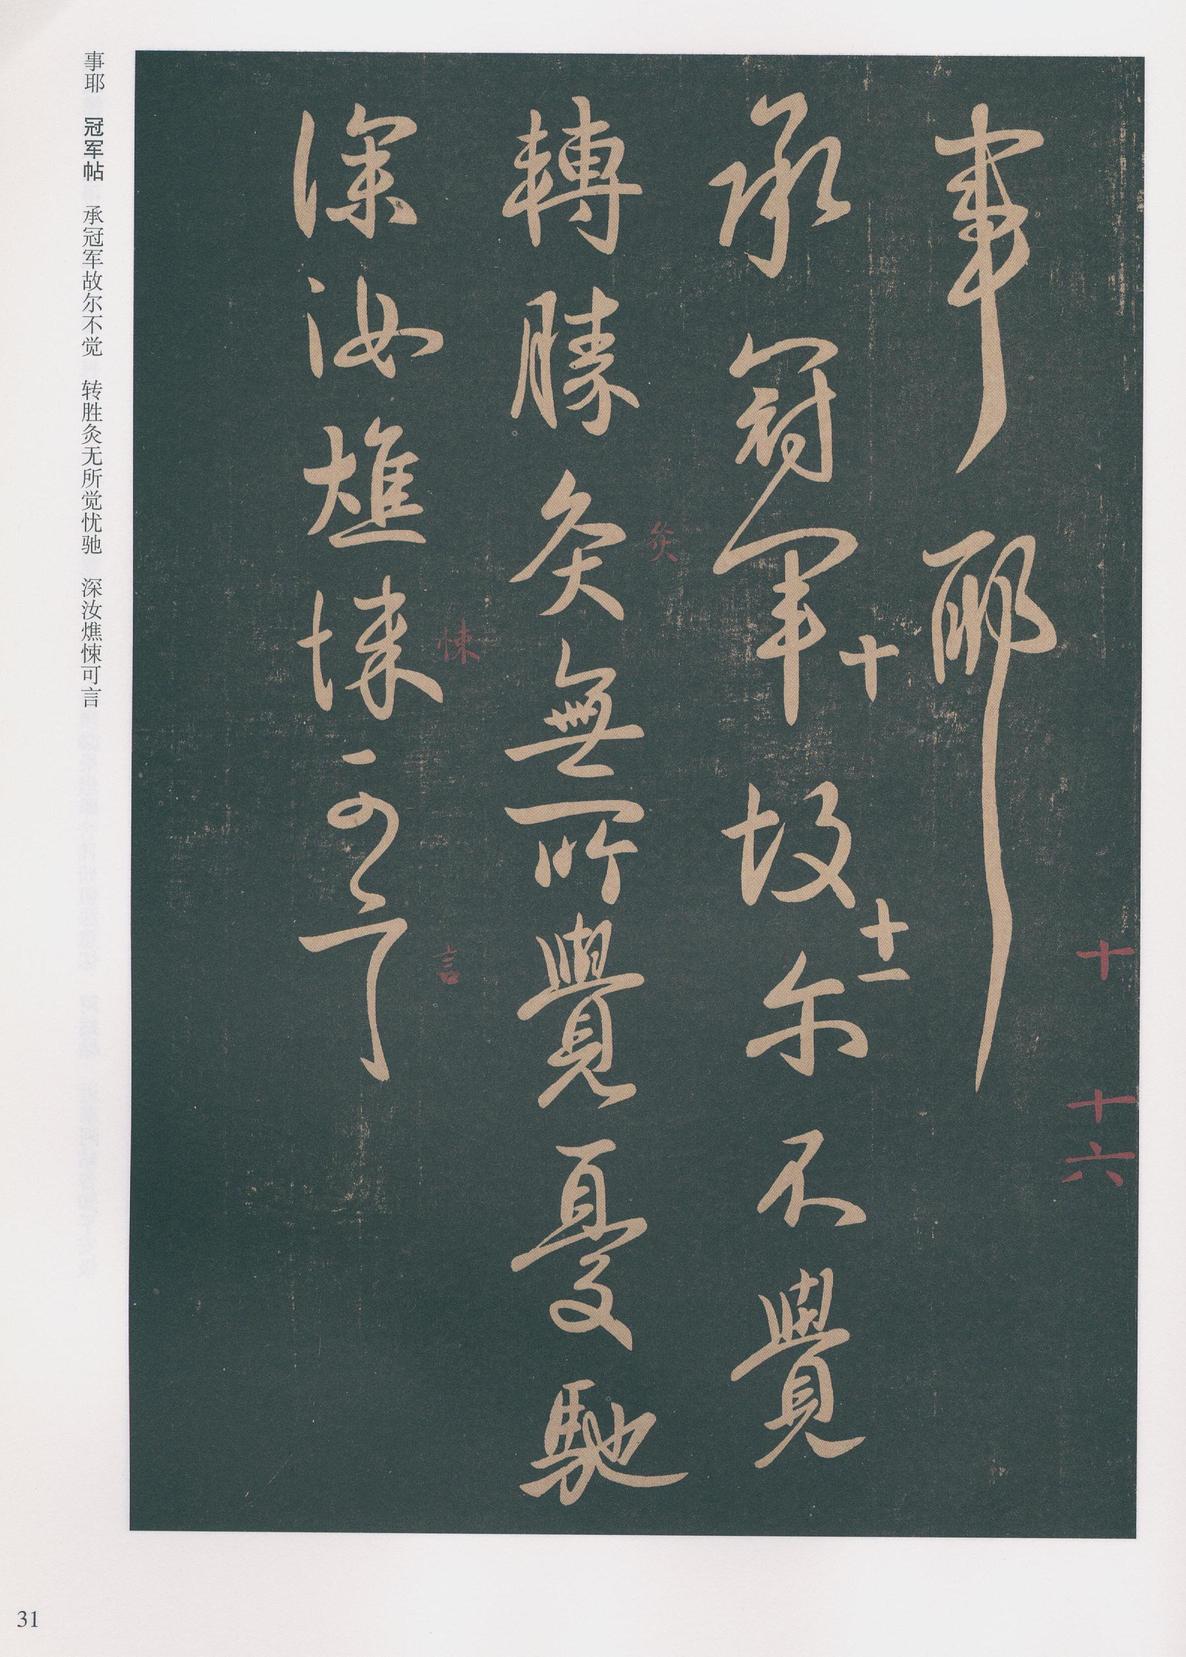 事耶
承冠軍故尔不覺
轉勝灸無所覺憂馳
深汝燋悚可言
十
十一
灸
悚
言
十
十六
事耶 冠军帖 承冠军故尔不觉 转胜灸无所觉忧驰 深汝燋悚可言
31